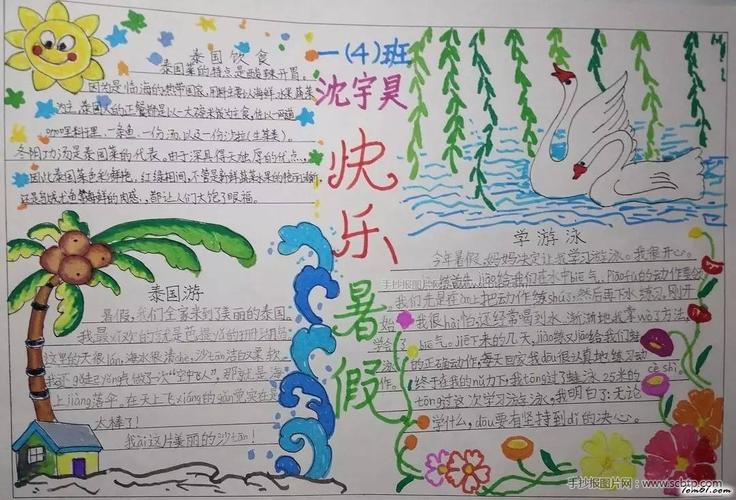 泰国饮食
泰国菜的特点是酸辣开胃。
因为是临海的热带国家,用料主要以海鲜、水果、蔬菜
为主。泰国人的正餐都是以一大碗米饭为主食,佐以一两道
咖喱料理、一条鱼、一份汤,以及一份沙拉(生菜类)。
冬阴功汤是泰国菜的代表。由于深具得天独厚的优点,
因此泰国菜色彩鲜艳,红绿相间,不管是新鲜蔬菜水果的艳丽清新
还是各味色泽海鲜的肉感,都让人们大饱了眼福。
一(4)班
沈宇昊
快乐暑假
泰国游
暑假,我们全家来到了美丽的泰国。
我最喜欢的就是芭提yǎ的珊瑚岛
这里的天很lán,海水很清chè,沙tān洁白又柔软
上jiàng落伞,在天上飞xiáng的gǎn觉实在是
太棒了!
我ài这片美丽的沙tān!
学游泳
今年暑假,妈妈决定让我学习游泳。我很开心。
手抄报图片网
我很hài怕,还经常喝到水,渐渐地我掌wò了方法,
学会了biē气。jiē下来的几天,jiāo练又jiāo给我们蛙
泳的正确动作,每天回家我dōu很认真地练习动
作。终于在我的nǔ力下,我tōng过了蛙泳25米的cè shì,
tōng过这次学习游泳,我明白了:无论
学什么,dōu要有坚持到dǐ的决心。
手抄报图片网:www.scbtp.com
Tom61.com